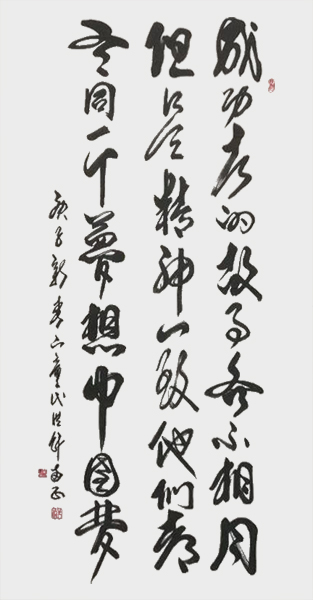 成功者的故事各不相同
但是精神一致他们都
有同一个梦想中国梦
庚子新春